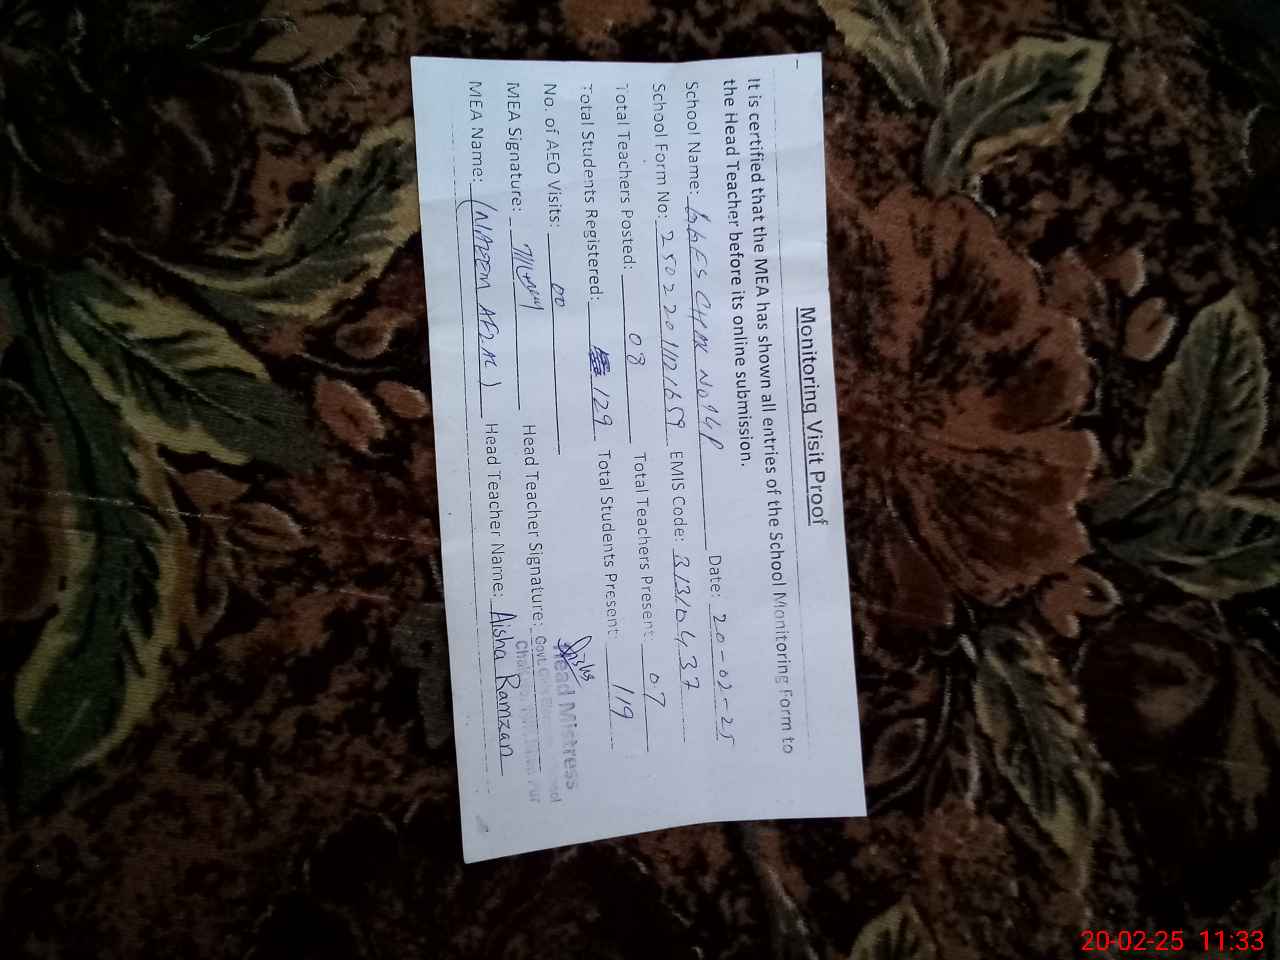 Monitoring Visit Proof
It is certified that the MEA has shown all entries of the School Monitoring Form to
the Head Teacher before its online submission.
School Name: GGES CHAK No 14P Date: 20-02-25
School Form No: 2502201121659 EMIS Code: 31310437
Total Teachers Posted: 08 Total Teachers Present: 07
Total Students Registered: 129 Total Students Present: 119
No. of AEO Visits: 00
Head Mistress
MEA Signature: Head Teacher Signature: Govt.
MEA Name: (NADEEM AFZAL) Head Teacher Name: Aisha Ramzan
20-02-25 11:33